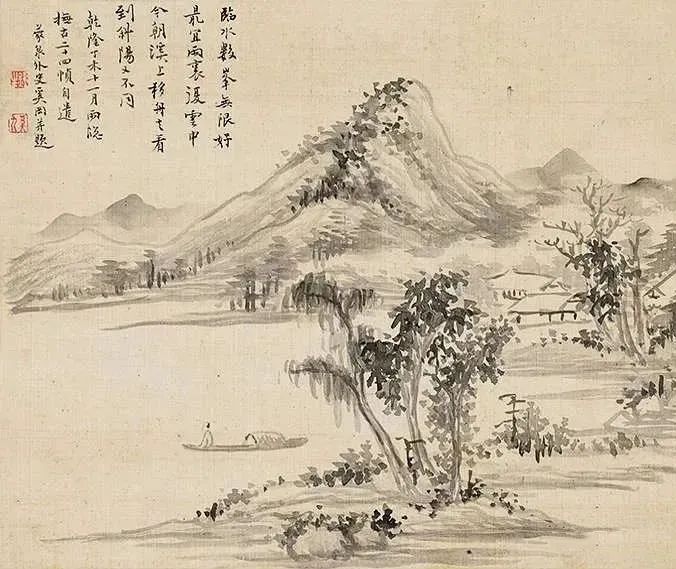 臨水數峯無限好
最宜雨裏復雲中
今朝溪上移舟去看
到斜陽又不同
乾隆丁未十一月雨窓
撫古二十四幀自遣
蒙泉外史奚岡并題